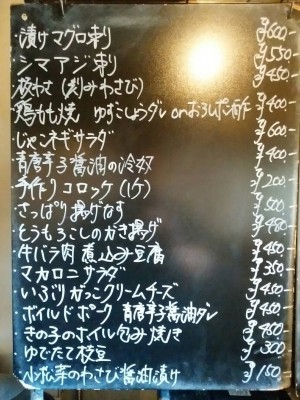 ・漬けマグロ刺 ¥600-
・シマアジ刺 ¥550-
・板わさ（刻みわさび） ¥450-
・鶏もも焼 ゆずこしょうダレ orおろしポン酢 ¥400-
・じゃこネギサラダ ¥600-
・青唐辛子醤油の冷奴 ¥400-
・手作りコロッケ（1ケ） ¥200-
・さっぱり揚げなす ¥500-
・とうもろこしのかき揚げ ¥480-
・牛バラ肉煮込み豆腐 ¥450-
・マカロニサラダ ¥350-
・いぶりがっこクリームチーズ ¥450-
・ボイルドポーク 青唐辛子醤油ダレ ¥450-
・きの子のホイル包み焼き ¥450-
・ゆでたて枝豆 ¥300-
・小松菜のわさび醤油漬け ¥150-